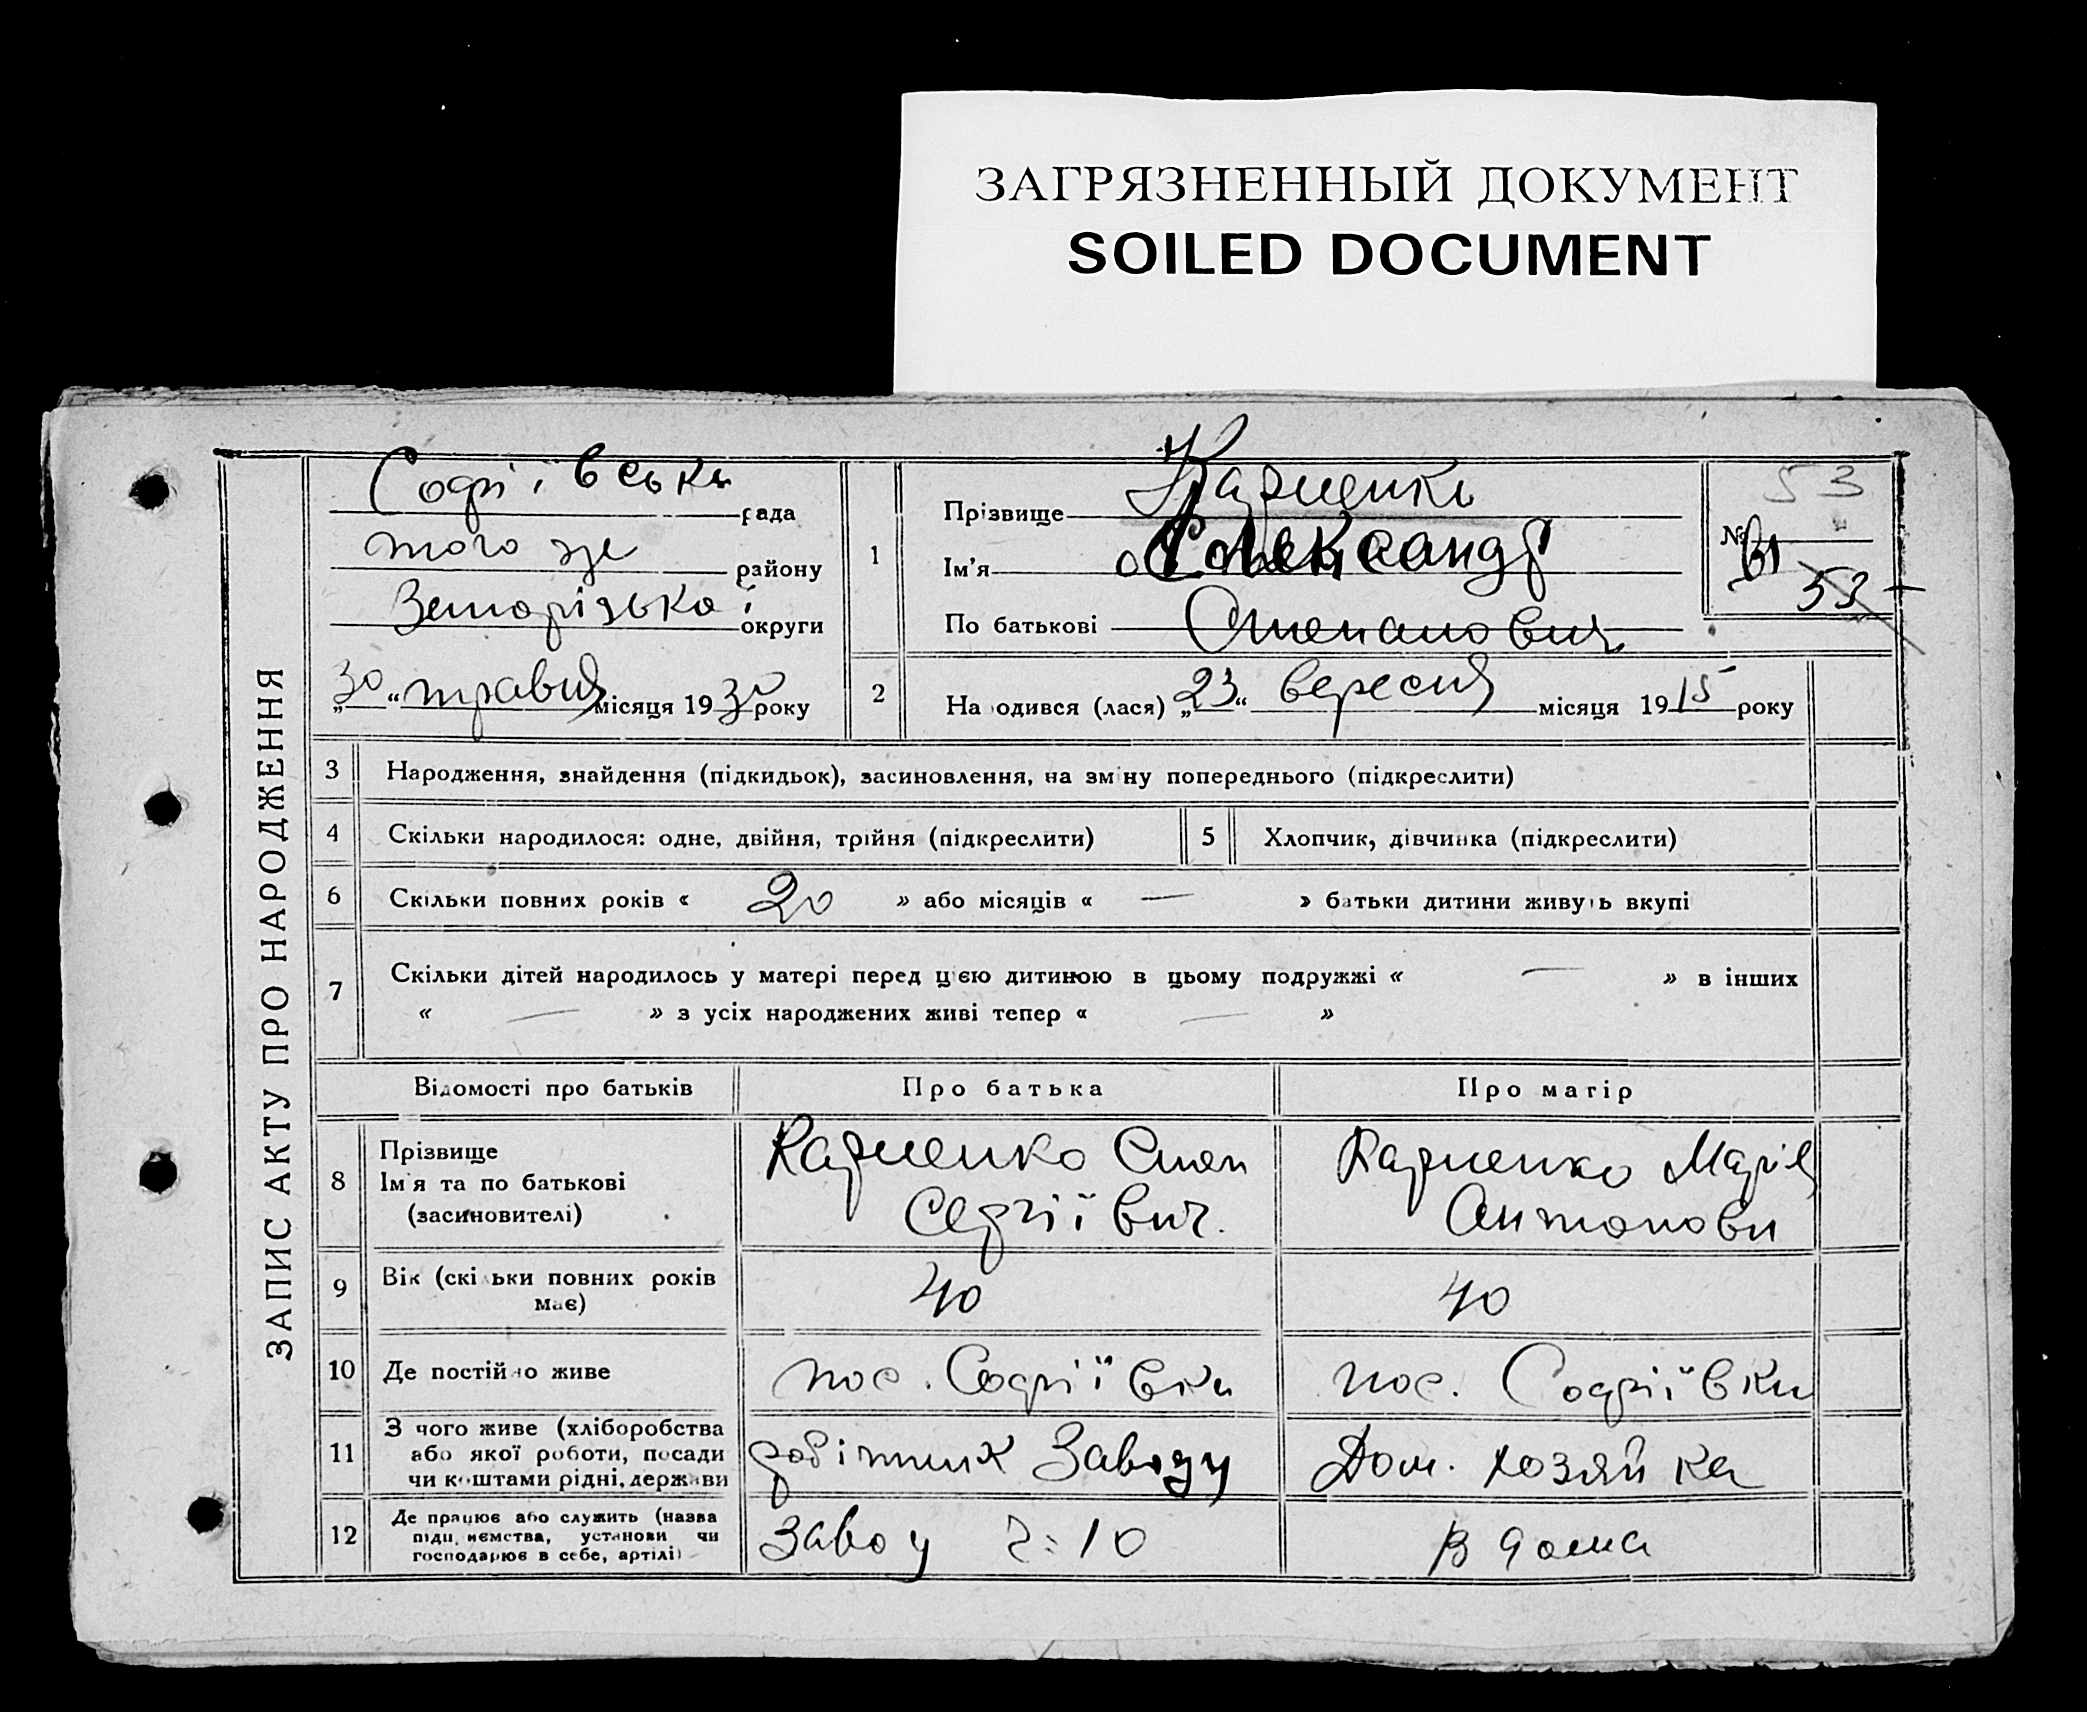 ЗАГРЯЗНЕННЫЙ ДОКУМЕНТ
SOILED DOCUMENT
ЗАПИС АКТУ ПРО НАРОДЖЕННЯ
Софіївська рада
того же району
Запорізької округи
„30“ травня місяця 1930 року
1
Прізвище
Ім'я Олександр
По батькові Степанович
53
№ 61
53
2
Народився (лася) „23“ вересня місяця 1915 року
3 Народження, знайдення (підкидьок), засиновлення, на зміну попереднього (підкреслити)
4 Скільки народилося: одне, двійня, трійня (підкреслити)
5 Хлопчик, дівчинка (підкреслити)
6 Скільки повних років « 20 » або місяців « — » батьки дитини живуть вкупі
7 Скільки дітей народилось у матері перед цією дитиною в цьому подружжі « — » в інших
« — » з усіх народжених живі тепер « — »
Відомості про батьків
Про батька
Про матір
8
Прізвище
Ім'я та по батькові
(засиновителі)
Степ
Сергіївич.
Марія
Антонови
9
Вік (скільки повних років
має)
40
40
10 Де постійно живе
пос. Софіївки
пос. Софіївки
11
З чого живе (хліборобства
або якої роботи, посади
чи коштами рідні, держави
робітник Заводу
Дом. хозяйка
12
Де працює або служить (назва
підприємства, установи чи
господарює в себе, артілі)
10
в дома